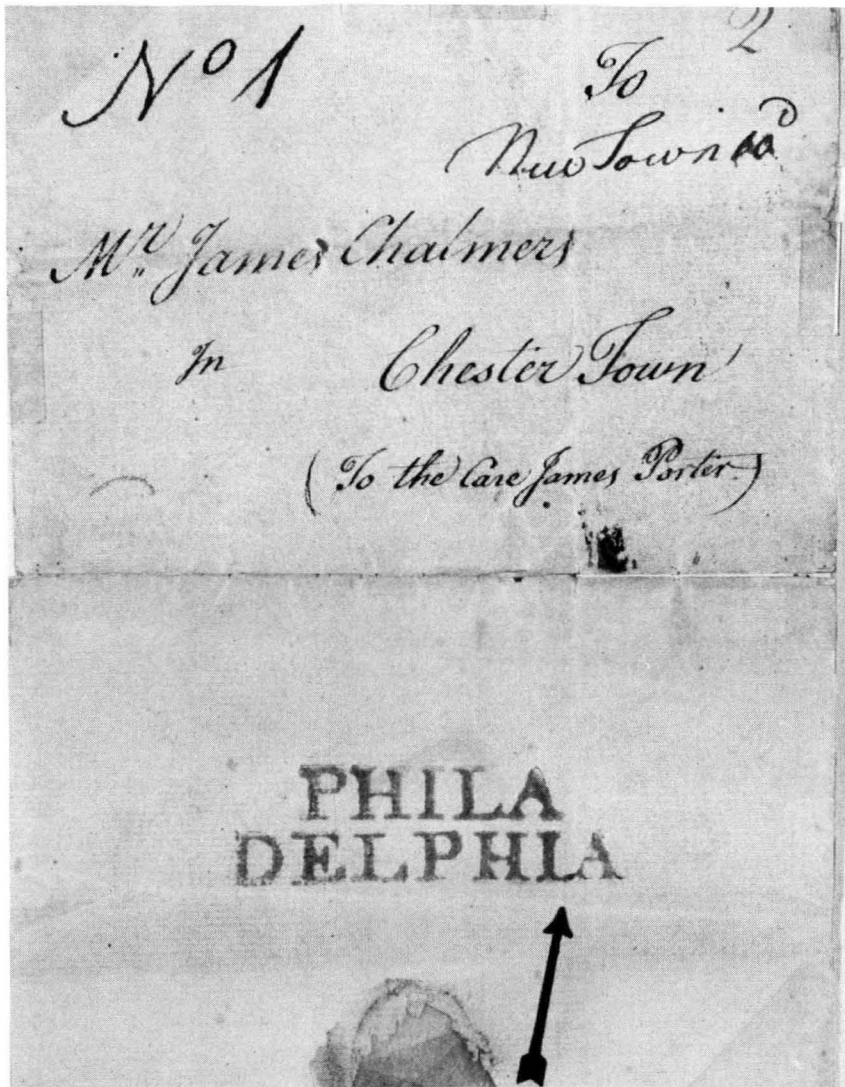 No 1
2
To
New Town
Mr. James Chalmers
In Chester Town
(To the Care James Porter)
PHILA
DELPHIA